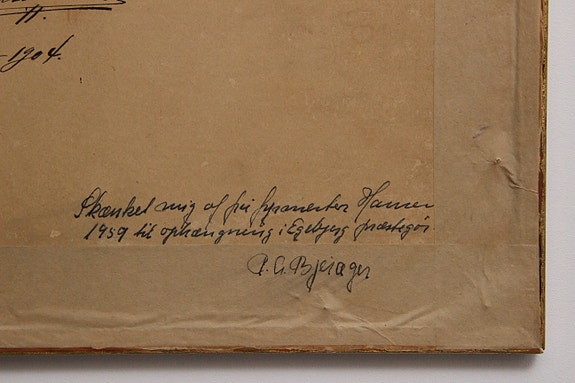 -1904.
Skænket mig af fru Hansen
1959 til ophængning i Egebjerg præstegår
P. G. Bjerager